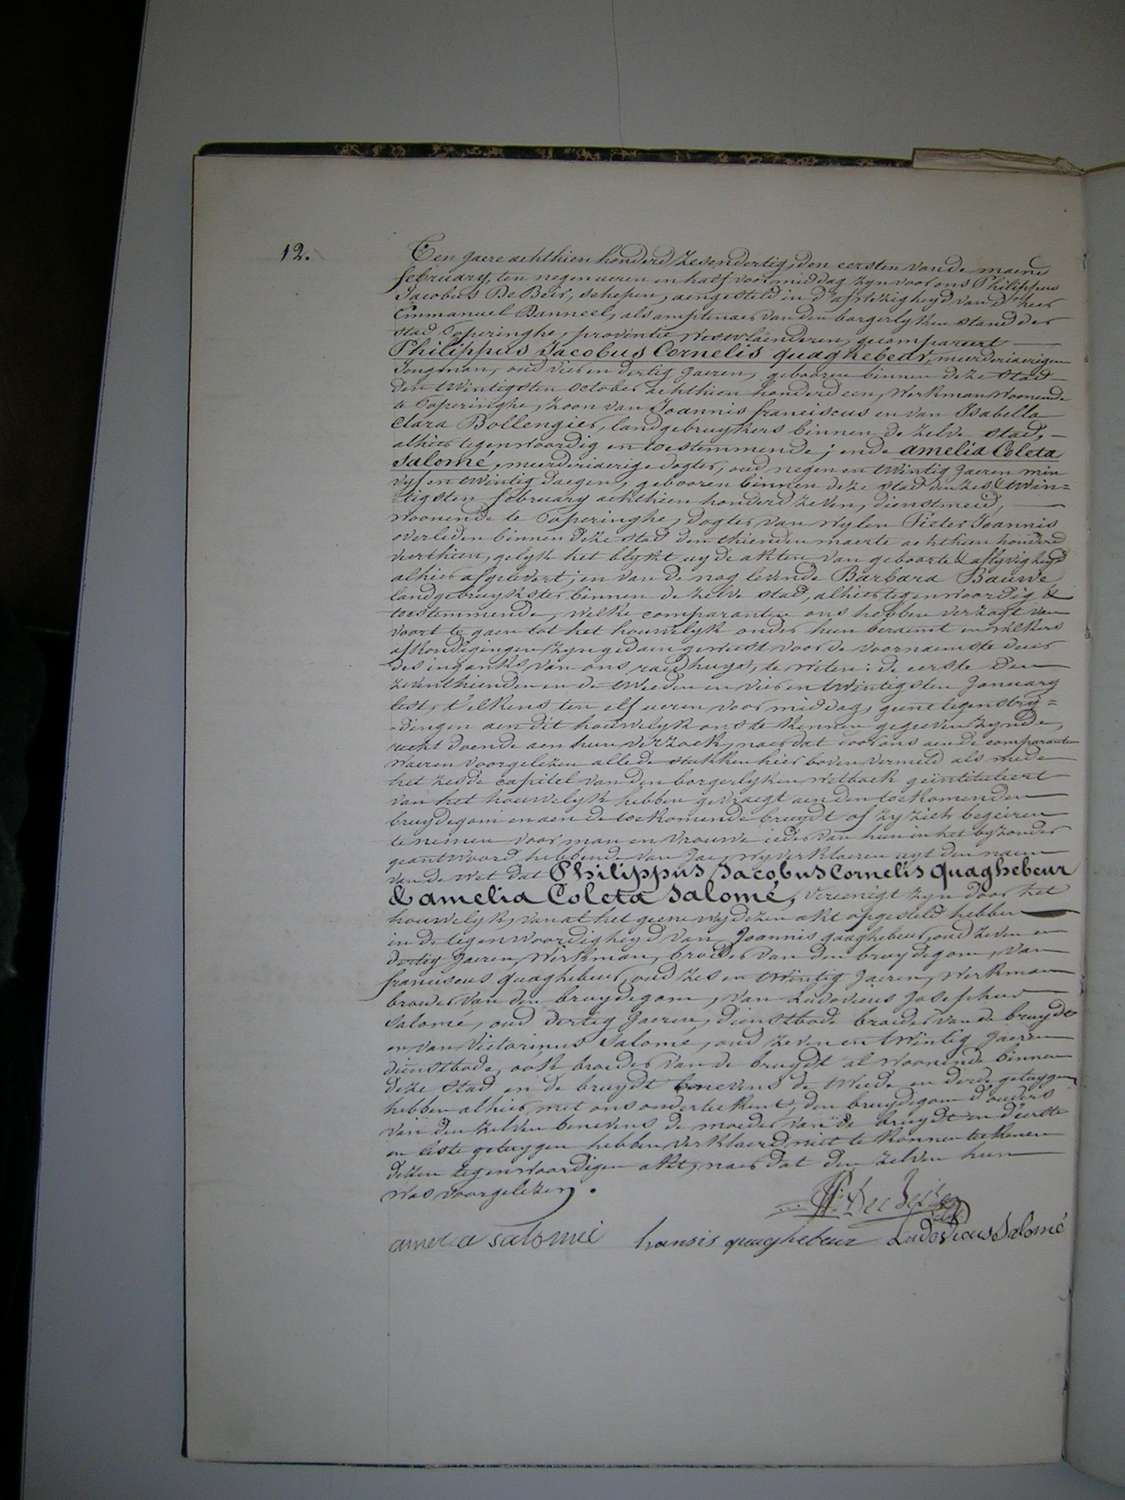 12.
Ten jaere achthien honderd zesendertig, den eersten van de maend
february, ten negen ueren en half voormiddag zyn voor ons Philippus
Jacobus De Beir, schepen, aengesteld in d'afwezigheyd van d'heer
Emmanuel Banneel, als amptenaer van den borgerlyken stand der
stad Poperinghe, provintie Westvlaenderen, gecompareert
Philippus Jacobus Cornelis quaghebeur, meerderjaerigen
Jongman, oud vier en dertig Jaeren, gebooren binnen deze stad
den twintigsten october achthien honderd een, Werkman woonende
te Poperinghe, zoon van Joannis franciscus en van Isabella
Clara Bollengier, landgebruykers binnen de zelve stad,
alhier tegenwoordig en toestemmende; ende amelia Coleta
Salomé, meerderjaerige dogter, oud negen en twintig Jaeren min
vyf en twintig daegen, gebooren binnen deze stad den zes & twin=
tigsten february achthien honderd zeven, dienstmeid,
woonende te Poperinghe, dogter van wylen Pieter Joannis
overleden binnen deze stad den thienden maerte achthien honderd
veerthien, gelyk het blykt uyt de akten van geboorte & aflyvigheyd
alhier afgelevert; en van de nog levende Barbara Bauwe
landgebruykster binnen de zelve stad, alhier tegenwoordig &
toestemmende, welke comparanten ons hebben verzogt van
voort te gaen tot het houwelyk onder hun beraemt en welkers
afkondigingen zyn gedaen geweest voor de voornaemste deur
des ingangs van ons raedhuys, te weten: de eerste den
zeventhienden en de tweede den vier en twintigsten January
lest, telkens ten elf ueren voormiddag, geene tegenstry=
dingen aen dit houwelyk ons te kennen gegeven zynde,
recht doende aen hun verzoek, naer dat voor ons aen de comparanten
waeren voorgelezen alle de stukken hier boven vermeld als mede
het zesde capitel van den borgerlyken wetboek geintituleert
van het houwelyk hebben gevraegt aen den toekomenden
bruydegom en aen de toekomende bruydt of zy zich begeiren
te nemen voor man en vrouwe ieder van hun in het byzonder
geantwoord hebbende van Jae, wy verklaeren uyt den naem
van de wet dat Philippus Jacobus Cornelis Quaghebeur
& amelia Coleta Salomé, vereenigt zyn door het
houwelyk, van al het geene wy dezen akt opgesteld hebben
in de tegenwoordigheyd van Joannis quaghebeur, oud zeven en
dertig Jaeren, Werkman, broeder van den bruydegom, van
franciscus quaghebeur, oud zes en twintig Jaeren, Werkman
broeder van den bruydegom, van Ludovicus Josephus
Salomé, oud dertig Jaeren, dienstbode broeder van de bruydt
en van Victorinus Salomé, oud zeven en twintig Jaeren
dienstbode, ook broeder van de bruydt al woonende binnen
deze stad en de bruydt benevens de tweede en derde getuygen
hebben alhier met ons onderteekent, den bruydegom d'ouders
van den zelven benevens de moeder van de bruydt en d'eerste
en leste getuygen hebben verklaerd niet te konnen teekenen
dezen tegenwoordigen akt, naer dat den zelven hun
was voorgelezen.
amelia salomei fransis quaghebeur Ludovicus Salomé